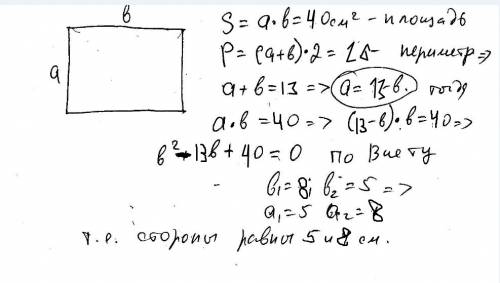 в
a
S = a·в = 40см² - площадь
P = (a+в)·2 = 26 - периметр =>
a + в = 13 => a = 13-в. тогда
a·в = 40 => (13-в)·в = 40 =>
в² - 13в + 40 = 0 по Виету
в₁ = 8; в₂ = 5 =>
a₁ = 5 a₂ = 8
т.е. стороны равны 5 и 8 см.